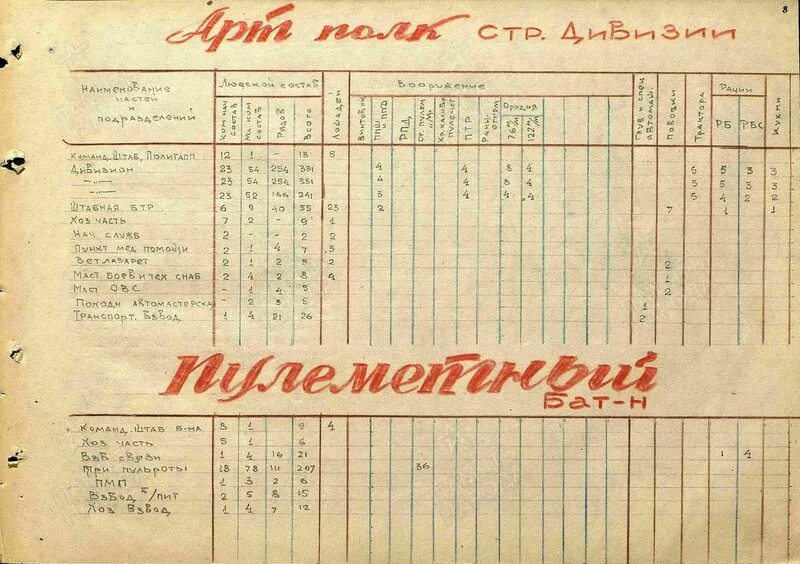 8
Арт полк стр. Дивизии
Наименование частей и подразделений
Людской состав
Вооружение
Рации
комнач состав
мл. ком состав
рядов
всего
Лошадей
винтовок
ППШ и ППД
РПД
ст. пулем
пулемет
ПТР
Орудия
76 м/м
122 м/м
Груз и спец автомаш.
Повозки
Трактора
РБ
РБС
Кухни
Команд. Штаб, Политапп 12 1 - 13 5
Дивизион 23 54 254 331 4 4 8 4 5 5 3 3
-"- 23 54 254 331 4 4 8 4 5 5 3 3
-"- 23 52 166 241 3 4 4 4 5 4 2 2
Штабная БТР 6 9 40 55 23 2 7 1 1
Хоз часть 7 2 - 9 1
Нач служб 2 - - 2 2
Пункт мед помощи 2 1 4 7 3
Ветлазарет 2 1 2 5 2 2
Маст. Боев и тех снаб 2 4 2 8 4 1
Маст ОВС - 1 4 5 2
Походн автомастерская - 2 3 5 1
Транспорт. Взвод 1 4 21 26 2
Пулеметный
Бат-н
Команд. Штаб Б-на 8 1 9 4
Хоз часть 5 1 6
Взв связи 1 4 16 21 1 4
Три пульроты 18 78 111 207 36
ПМП 1 3 2 6
Взвод б/пит 2 5 8 15
Хоз Взвод 1 4 7 12